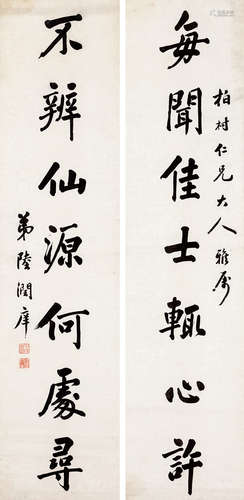 柏村仁兄大人雅属
每聞佳士輒心許
不辨仙源何處尋
弟陸潤庠